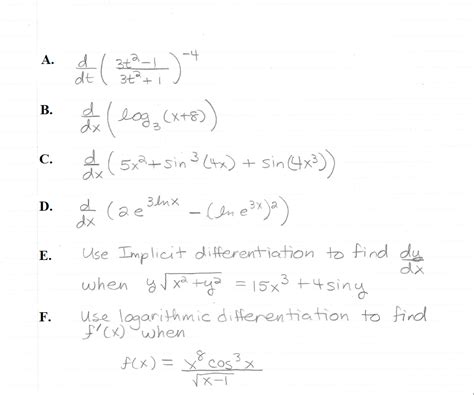 A. d/dt ( (3t²-1)/(3t²+1) )⁻⁴
B. d/dx ( log₃ (x+8) )
C. d/dx ( 5x² + sin³(4x) + sin(4x³) )
D. d/dx ( 2e^(3lnx) - (ln e^(3x))² )
E. Use Implicit differentiation to find dy/dx
when y√(x²+y²) = 15x³ + 4siny
F. Use logarithmic differentiation to find
f'(x) when
f(x) = (x⁸ cos³x)/√(x-1)